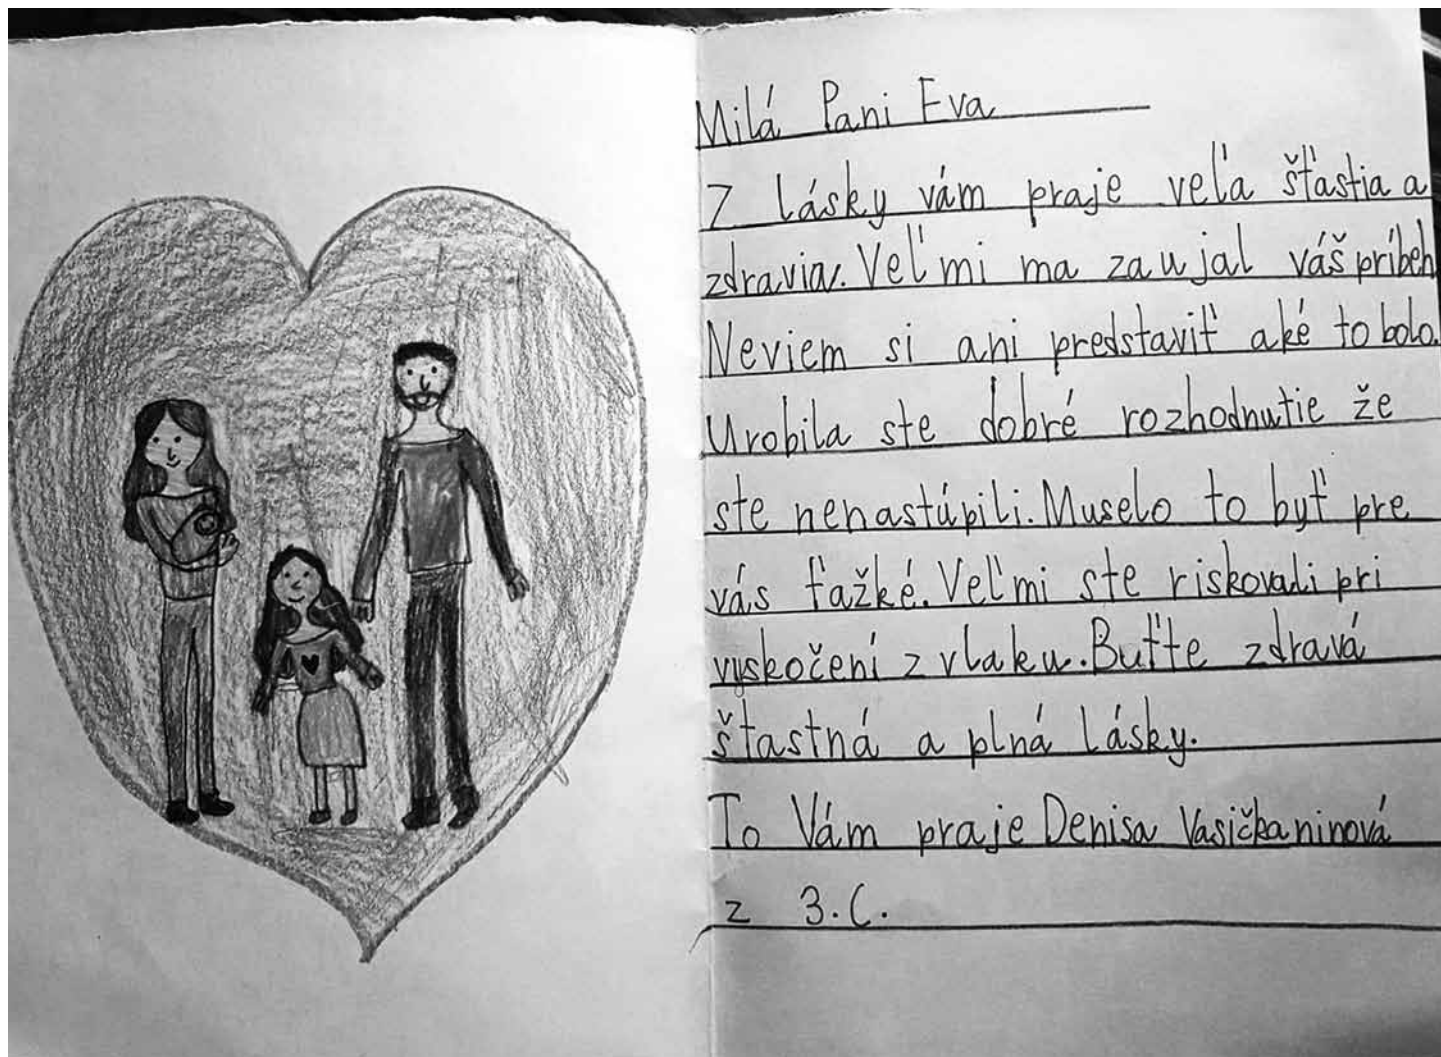 Milá Pani Eva
Z lásky vám praje veľa šťastia a
zdravia. Veľmi ma zaujal váš príbeh
Neviem si ani predstaviť aké to bolo.
Urobila ste dobré rozhodnutie že
ste nenastúpili. Muselo to byť pre
vás ťažké. Veľmi ste riskovali pri
vyskočení z vlaku. Buťte zdravá
šťastná a plná lásky.
To Vám praje Denisa Vasičkaninová
z 3.C.